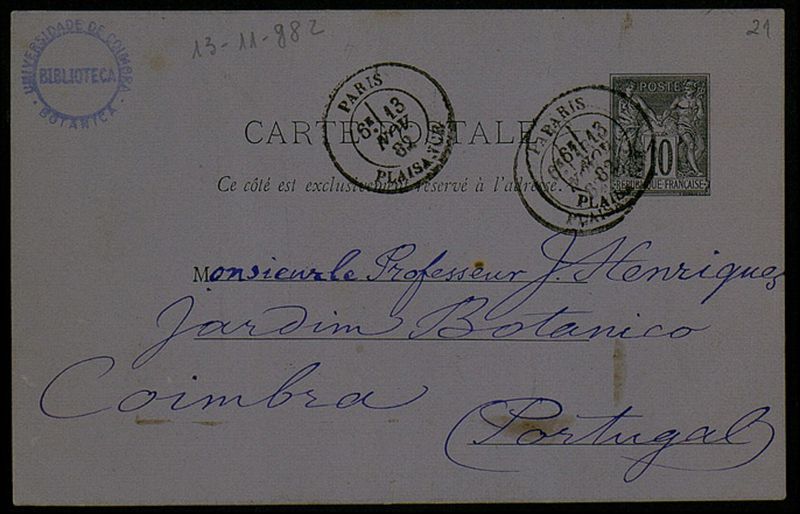 UNIVERSIDADE DE COIMBRA
BIBLIOTECA
BOTANICA
13-11-882
21
PARIS
6E 13
NOV
82
PLAISANCE
PARIS
13
NOV
82
PLAISANCE
POSTE
10
REPUBLIQUE FRANÇAISE
CARTE POSTALE
Ce côté est exclusivement réservé à l'adresse.
Monsieur le Professeur J. Henriques
Jardim Botanico
Coimbra
(Portugal)